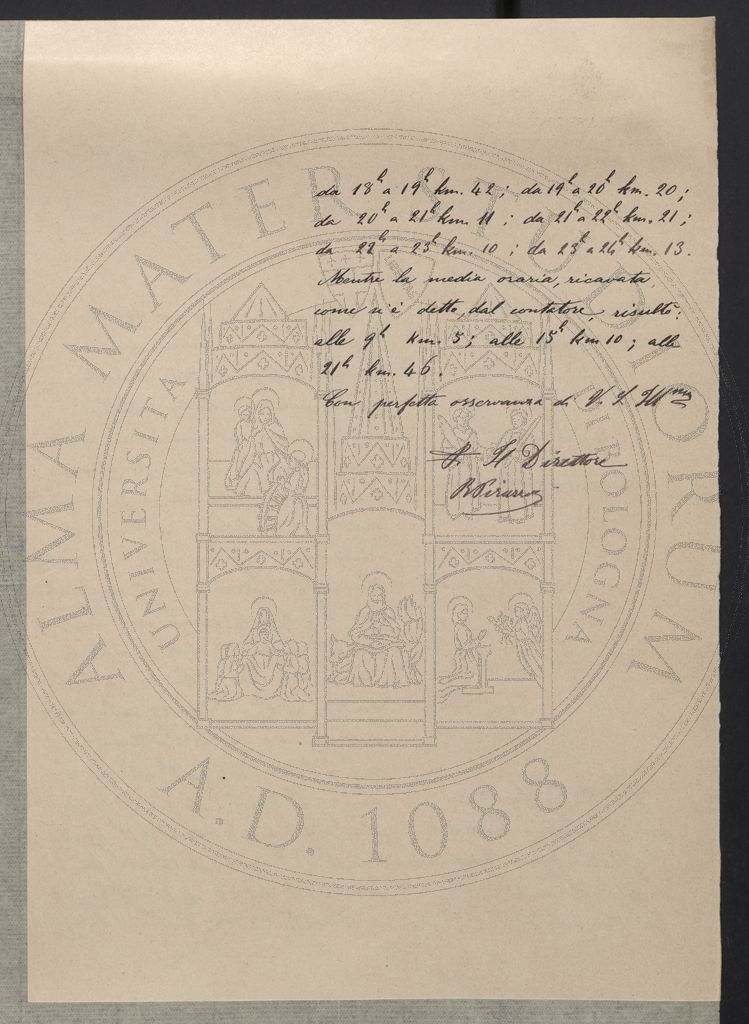 da 18h a 19h km. 42; da 19h a 20h km. 20;
da 20h a 21h km. 11; da 21h a 22h km. 21;
da 22h a 23h km. 10; da 23h a 24h km. 13.
Mentre la media oraria, ricavata,
come s'è detto, dal contatore, risultò:
alle 9h km. 5; alle 15h km 10; alle
21h km. 46.
Con perfetta osservanza di V. S. Illma
P. Il Direttore
ALMA MATER STUDIORUM
UNIVERSITÀ DI BOLOGNA
A.D. 1088